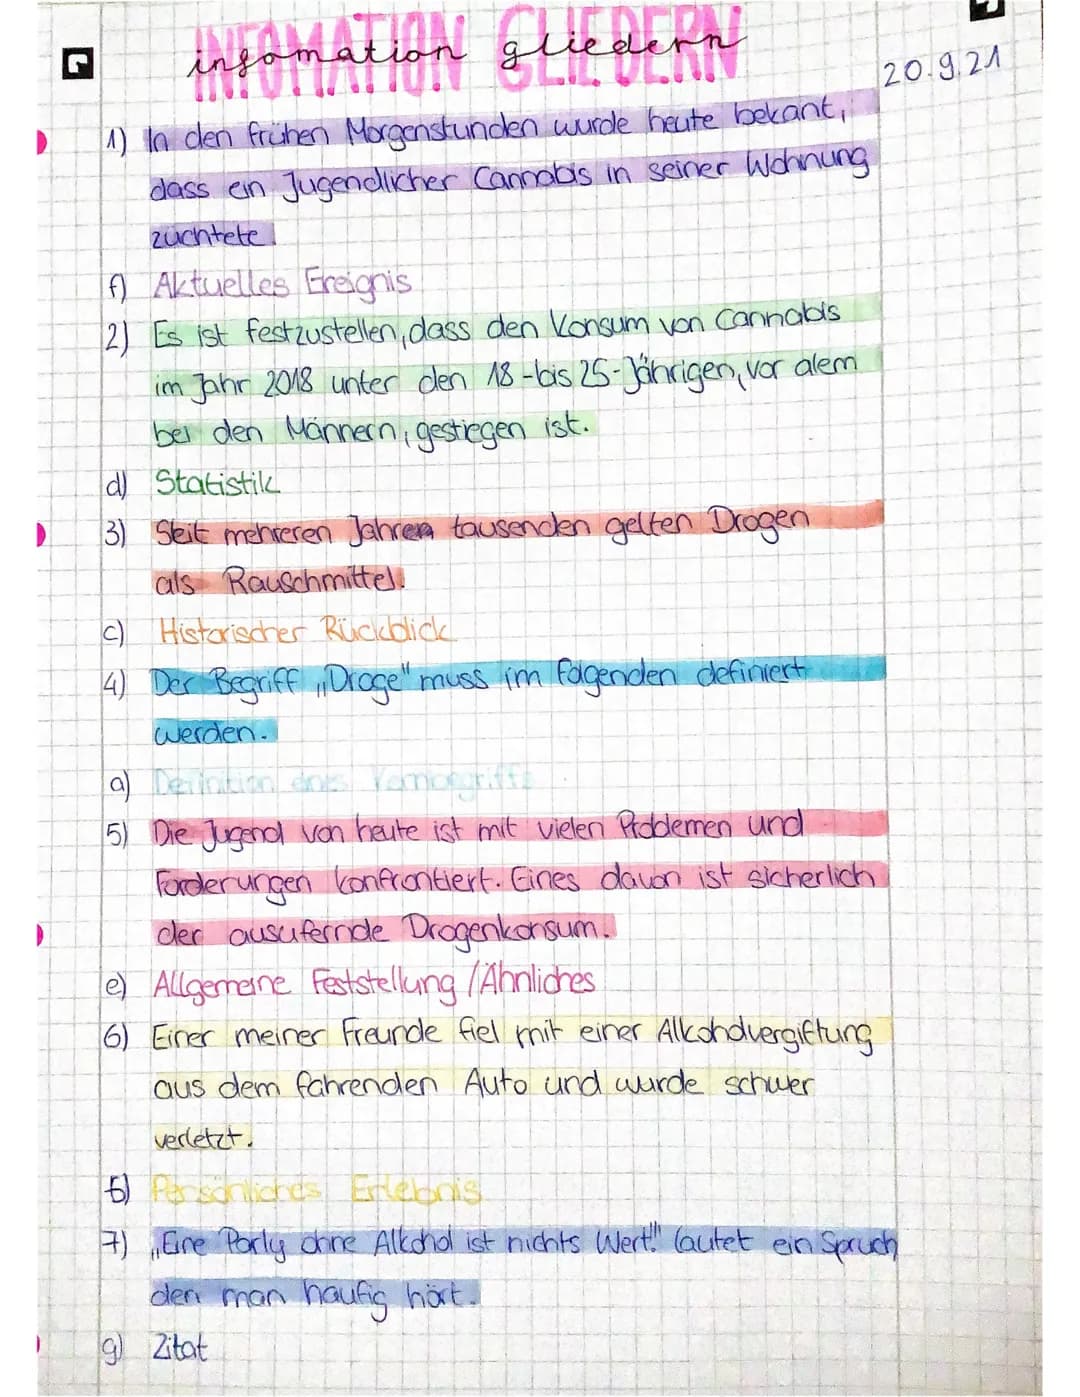 INFOMATION GLIEDERN
infomation gliedern
20.9.21
1) In den frühen Morgenstunden wurde heute bekant,
dass ein Jugendlicher Cannabis in seiner Wohnung
züchtete
f) Aktuelles Ereignis
2) Es ist festzustellen, dass den Konsum von Cannabis
im Jahr 2018 unter den 18-bis 25-Jährigen, vor alem
bei den Männern, gestiegen ist.
d) Statistik
3) Seit mehreren Jahren tausenden gelten Drogen
als Rauschmittel.
c) Historischer Rückblick
4) Der Begriff „Droge" muss im folgenden definiert
werden.
a) Definition eines
5) Die Jugend von heute ist mit vielen Problemen und
Forderungen konfrontiert. Eines davon ist sicherlich
der ausufernde Drogenkonsum.
e) Allgemeine Feststellung / Ähnliches
6) Einer meiner Freunde fiel mit einer Alkoholvergiftung
aus dem fahrenden Auto und wurde schwer
verletzt.
b) Persönliches Erlebnis
7) „Eine Party ohne Alkohol ist nichts Wert!" lautet ein Spruch
den man haufig hört.
g) Zitat